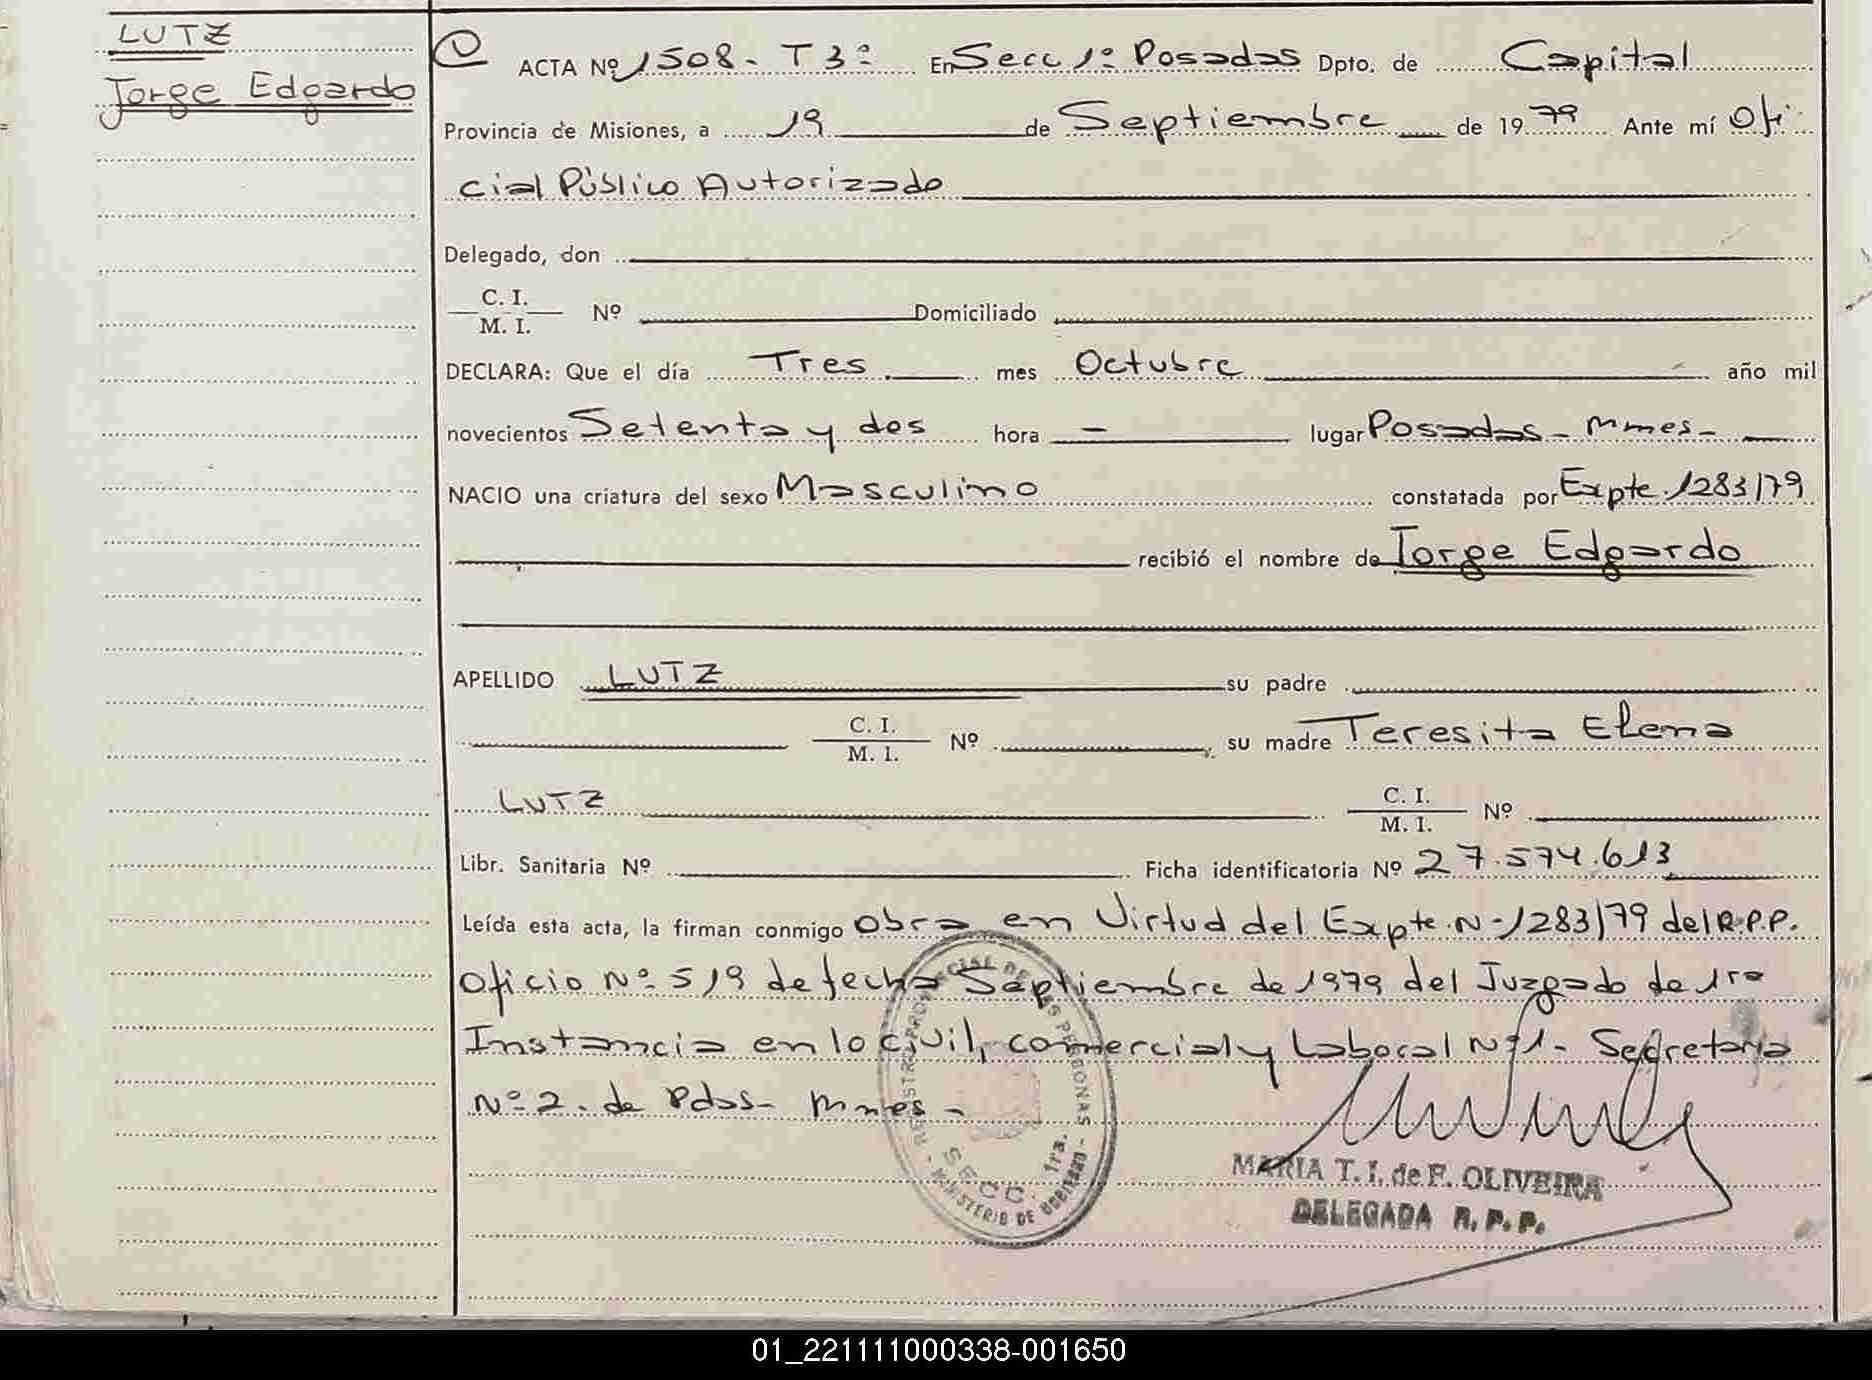 LUTZ
Jorge Edgardo
ACTA Nº 1508 - T 3º En Secc 1º Posadas Dpto. de Capital
Provincia de Misiones, a 19 de Septiembre de 1979 Ante mí Ofi
cial Público Autorizado
Delegado, don
C. I.
M. I. Nº Domiciliado
DECLARA: Que el día Tres mes Octubre año mil
novecientos Setenta y dos hora - lugar Posadas - Mnes -
NACIO una criatura del sexo Masculino constatada por Expte. 1283/79
recibió el nombre de Jorge Edgardo
APELLIDO LUTZ su padre
C. I.
M. I. Nº su madre Teresita Elena
LUTZ C. I.
M. I. Nº
Libr. Sanitaria Nº Ficha identificatoria Nº 27.574.613
Leída esta acta, la firman conmigo Obra en Virtud del Expte. Nº 1283/79 del R.P.P.
Oficio Nº 519 de fecha Septiembre de 1979 del Juzgado de 1ra
Instancia en lo civil, comercial y Laboral Nº 1 - Secretaria
Nº 2 - de Pdas - Mnes -
REGISTRO PROVINCIAL DE LAS PERSONAS - MINISTERIO DE GOBIERNO -
SECC. 1ra.
MARIA T. I. de F. OLIVEIRA
DELEGADA R. P. P.
01_221111000338-001650